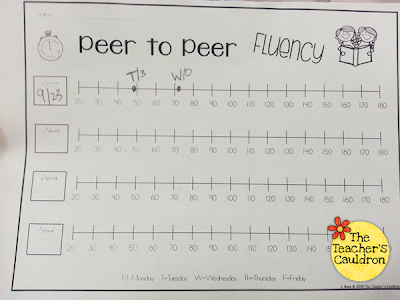 peer to peer FLUENCY
T/3 W/0
9/23
20 30 40 50 60 70 80 90 100 110 120 130 140 150 160 170 180
Week
20 30 40 50 60 70 80 90 100 110 120 130 140 150 160 170 180
Week
20 30 40 50 60 70 80 90 100 110 120 130 140 150 160 170 180
Week
20 30 40 50 60 70 80 90 100 110 120 130 140 150 160 170 180
M=Monday T=Tuesday W=Wednesday Th=Thursday F=Friday
The
Teacher's
Cauldron